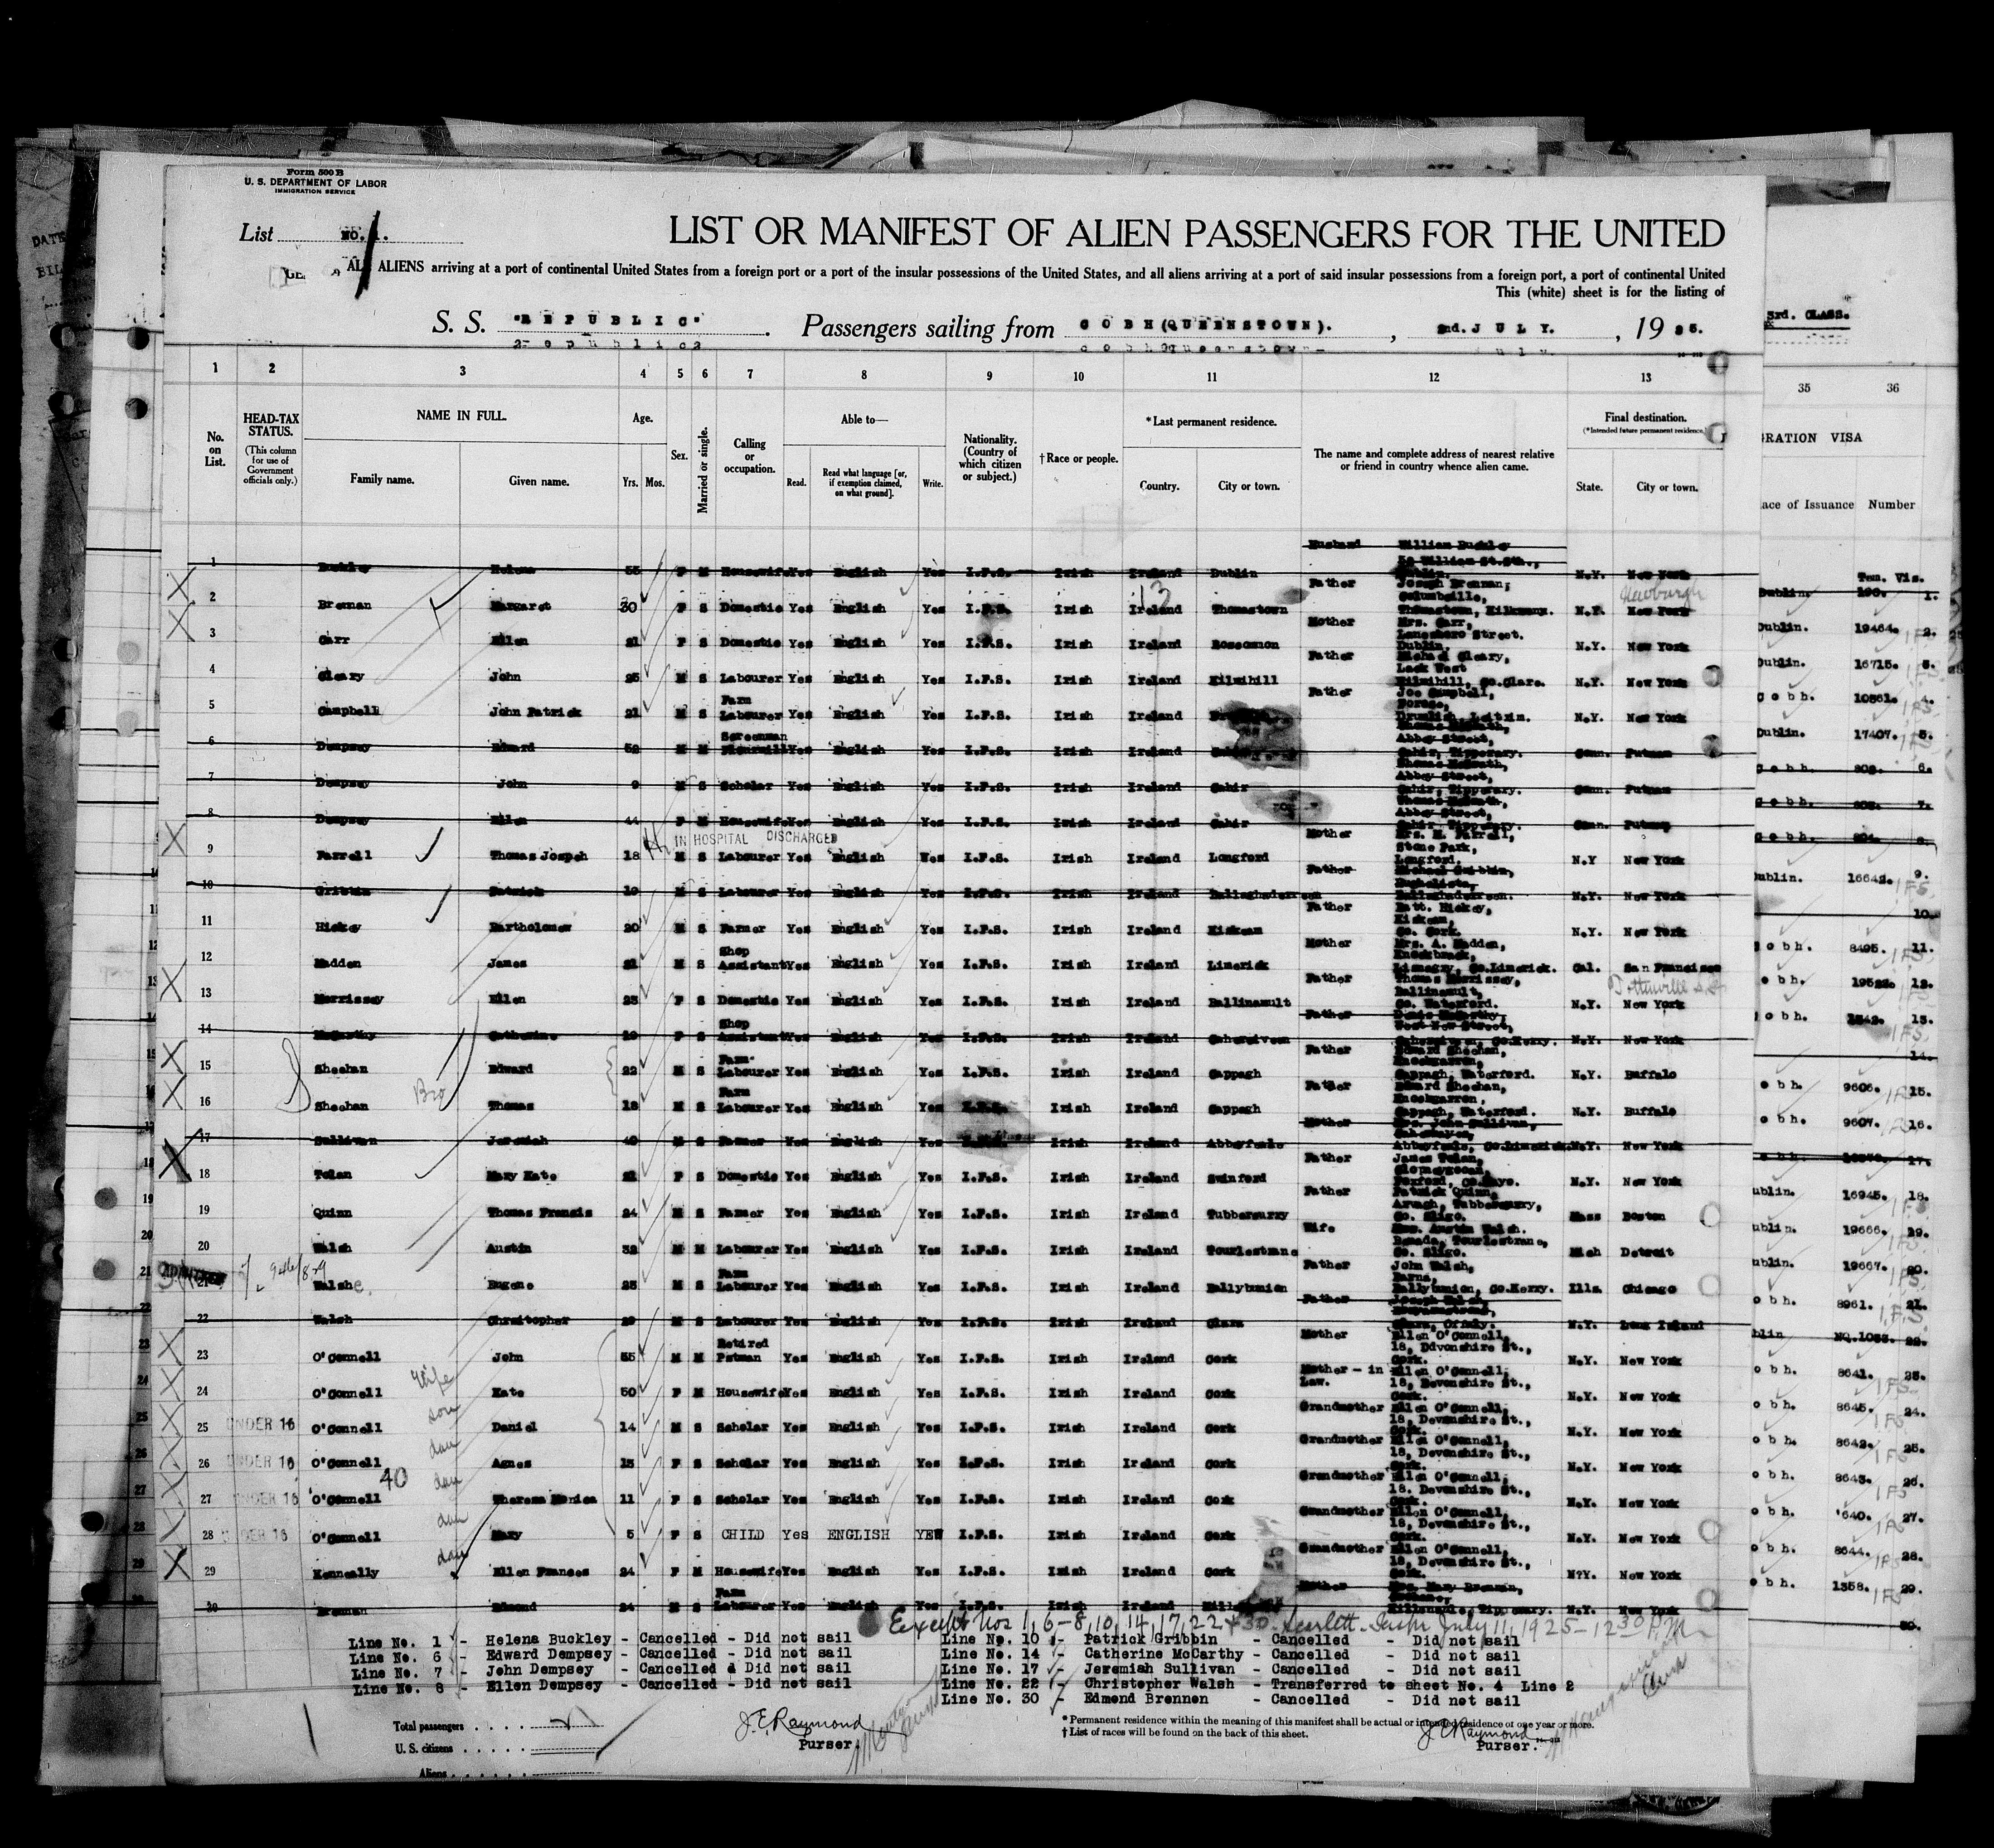 Form 500 B
U. S. DEPARTMENT OF LABOR
IMMIGRATION SERVICE
List NO. 1.
LIST OR MANIFEST OF ALIEN PASSENGERS FOR THE UNITED
ALL ALIENS arriving at a port of continental United States from a foreign port or a port of the insular possessions of the United States, and all aliens arriving at a port of said insular possessions from a foreign port, a port of continental United
This (white) sheet is for the listing of
S. S. "REPUBLIC". Passengers sailing from COBH(QUEENSTOWN). , 2nd. JULY. , 19 25.
3rd. CLASS.
1 2 3 4 5 6 7 8 9 10 11 12 13 35 36
No. on List.
HEAD-TAX STATUS.
(This column for use of Government officials only.)
NAME IN FULL.
Family name. Given name.
Age.
Yrs. Mos.
Sex.
Married or single.
Calling or occupation.
Able to—
Read. Read what language [or, if exemption claimed, on what ground]. Write.
Nationality. (Country of which citizen or subject.)
†Race or people.
*Last permanent residence.
Country. City or town.
The name and complete address of nearest relative or friend in country whence alien came.
Final destination.
(*Intended future permanent residence.)
State. City or town.
GRATION VISA
ace of Issuance Number
1 Buckley Helena 55 F M Housewife Yes English Yes I.F.S. Irish Ireland Dublin Husband William Buckley 50 William St.Sth., Dublin. N.Y. New York
2 Brennan Margaret 30 F S Domestic Yes English Yes I.F.S. Irish Ireland Thomastown Father Joseph Brennan, Columbcille, Thomastown, Kilkenny. N.Y. New York Newburgh Dublin. 19464. 2.
3 Carr Ellen 21 F S Domestic Yes English Yes I.F.S. Irish Ireland Roscommon Mother Mrs. Carr, Lanesboro Street. N.Y. New York Dublin. 16715. 3.
4 Cleary John 25 M S Labourer Yes English Yes I.F.S. Irish Ireland Kilmihill Father Michael Cleary, Lack West Kilmihill, Co.Clare. N.Y. New York Cobh. 10361. 4.
5 Campbell John Patrick 21 M S Farm Labourer Yes English Yes I.F.S. Irish Ireland Father Joe Campbell, Drumlish, Leitrim. N.Y. New York Dublin. 17407. 5.
6 Dempsey Edward 52 M M Yes English Yes I.F.S. Irish Ireland Cahir Abbey Street, Cahir, Tipperary. Conn. Putnam
7 Dempsey John 9 M S Scholar Yes English Yes I.F.S. Irish Ireland Cahir Abbey Street, Cahir, Tipperary. Conn. Putnam
8 Dempsey Ellen 44 F M Housewife Yes English Yes I.F.S. Irish Ireland Cahir Abbey Street, Cahir, Tipperary. Conn. Putnam
IN HOSPITAL DISCHARGED
9 Farrell Thomas Jospeh 18 M S Labourer Yes English Yes I.F.S. Irish Ireland Longford Mother Mrs. M. Farrell, Stone Park, Longford. N.Y New York Dublin. 16642. 9.
10 Gribbin Patrick 19 M S Labourer Yes English Yes I.F.S. Irish Ireland Ballaghaderreen Father Michael Gribbin, Ballaghaderreen. N.Y. New York 10.
11 Hickey Bartholomew 20 M S Farmer Yes English Yes I.F.S. Irish Ireland Kiskeam Father Batt. Hickey, Kiskeam, Co. Cork. N.Y. New York Cobh. 8495. 11.
12 Madden James 21 M S Shop Assistant Yes English Yes I.F.S. Irish Ireland Limerick Mother Mrs. A. Madden, Knockbrack, Co.Limerick. Cal. San Francisco obh. 12.
13 Morrissey Ellen 23 F S Domestic Yes English Yes I.F.S. Irish Ireland Ballinamult Father Thomas Morrissey, Ballinamult, Co. Waterford. N.Y. New York obh. 13.
14 McCarthy Catherine 19 F S Shop Assistant Yes English Yes I.F.S. Irish Ireland Cahersiveen Father Denis McCarthy, West New Street, Cahersiveen, Co.Kerry. N.Y. New York 14.
15 Sheehan Edward 22 M S Farm Labourer Yes English Yes I.F.S. Irish Ireland Cappagh Father Edward Sheehan, Knockgarron, Cappagh, Waterford. N.Y. Buffalo obh. 9606. 15.
16 Sheehan Bro Thomas 18 M S Farm Labourer Yes English Yes I.F.S. Irish Ireland Cappagh Father Edward Sheehan, Knockgarron, Cappagh, Waterford. N.Y. Buffalo obh. 9607. 16.
17 Sullivan Jeremiah M S Farmer Yes English Yes Irish Ireland Abbeyfeale Mother Mrs. John Sullivan, Abbeyfeale, Co.Limerick. N.Y. New York 17.
18 Tolan Mary Kate 21 F S Domestic Yes English Yes I.F.S. Irish Ireland Swinford Father James Tolan, Foxford, Co.Mayo. N.Y. New York ublin. 16945. 18.
19 Quinn Thomas Francis 24 M S Farmer Yes English Yes I.F.S. Irish Ireland Tubbercurry Father Patrick Quinn, Tubbercurry, Co. Sligo. Mass Boston ublin. 19666. 19.
20 Walsh Austin 32 M M Labourer Yes English Yes I.F.S. Irish Ireland Tourlestrane Wife Mrs. Austin Walsh. Tourlestrane, Co. Sligo. Mich Detroit ublin. 19667. 20.
21 Walshe Eugene 23 M S Farm Labourer Yes English Yes I.F.S. Irish Ireland Ballybunion Father John Walsh, Ballybunion, Co.Kerry. Ills. Chicago obh. 8961. 21.
22 Walsh Christopher M S Labourer Yes English Yes I.F.S. Irish Ireland Clara Father Joseph Walsh, Clara, Offaly. N.Y. Long Island
23 O'Connell John 55 M M Retired Pstman Yes English Yes I.F.S. Irish Ireland Cork Mother Ellen O'Connell, 18, Ddvonshire St., Cork. N.Y. New York obh. 8641. 23.
24 O'Connell Wife Kate 50 F M Housewife Yes English Yes I.F.S. Irish Ireland Cork Mother - in Law. Ellen O'Connell, 18, Devonshire St., Cork. N.Y. New York obh. 8645. 24.
25 UNDER 16 O'Connell son Daniel 14 M S Scholar Yes English Yes I.F.S. Irish Ireland Cork Grandmother Ellen O'Connell, 18, Devonshire St., Cork. N.Y. New York obh. 8642. 25.
26 UNDER 16 O'Connell dau Agnes 13 F S Scholar Yes English Yes I.F.S. Irish Ireland Cork Grandmother Ellen O'Connell, 18, Devonshire St., Cork. N.Y. New York obh. 8643. 26.
27 UNDER 16 O'Connell 40 dau Theresa Monica 11 F S Scholar Yes English Yes I.F.S. Irish Ireland Cork Grandmother Ellen O'Connell, 18. Devonshire St., Cork. N.Y. New York obh. 640. 27.
28 UNDER 16 O'Connell dau Mary 5 F S CHILD Yes ENGLISH YES I.F.S. Irish Ireland Cork Grandmother Ellen O'Connell, 18, Devonshire St., Cork. N.Y. New York obh. 8644. 28.
29 Kenneally dau Ellen Frances 24 F M Housewife Yes English Yes I.F.S. Irish Ireland Cork Grandmother Ellen O'Connell, 18, Devonshire St., Cork. N?Y. New York obh. 1358. 29.
30 Brennan Edmond 24 M S Farm Labourer Yes English Yes I.F.S. Irish Ireland Mother Mrs. Mary Brennan, Killenaule, Tipperary. N.Y. New York 30.
Except Nos 1, 6-8, 10, 14, 17, 22 + 30. July 11, 1925 - 12 30 P.M
Line No. 1 - Helena Buckley - Cancelled - Did not sail
Line No. 6 - Edward Dempsey - Cancelled - Did not sail
Line No. 7 - John Dempsey - Cancelled - Did not sail
Line No. 8 - Ellen Dempsey - Cancelled - Did not sail
Line No. 10 - Patrick Gribbin - Cancelled - Did not sail
Line No. 14 - Catherine McCarthy - Cancelled - Did not sail
Line No. 17 - Jeremiah Sullivan - Cancelled - Did not sail
Line No. 22 - Christopher Walsh - Transferred to sheet No. 4 Line 2
Line No. 30 - Edmond Brennen - Cancelled - Did not sail
Total passengers
U. S. citizens
Aliens
J.E. Raymond
Purser.
* Permanent residence within the meaning of this manifest shall be actual or intended residence of one year or more.
† List of races will be found on the back of this sheet.
J E Raymond
Purser.